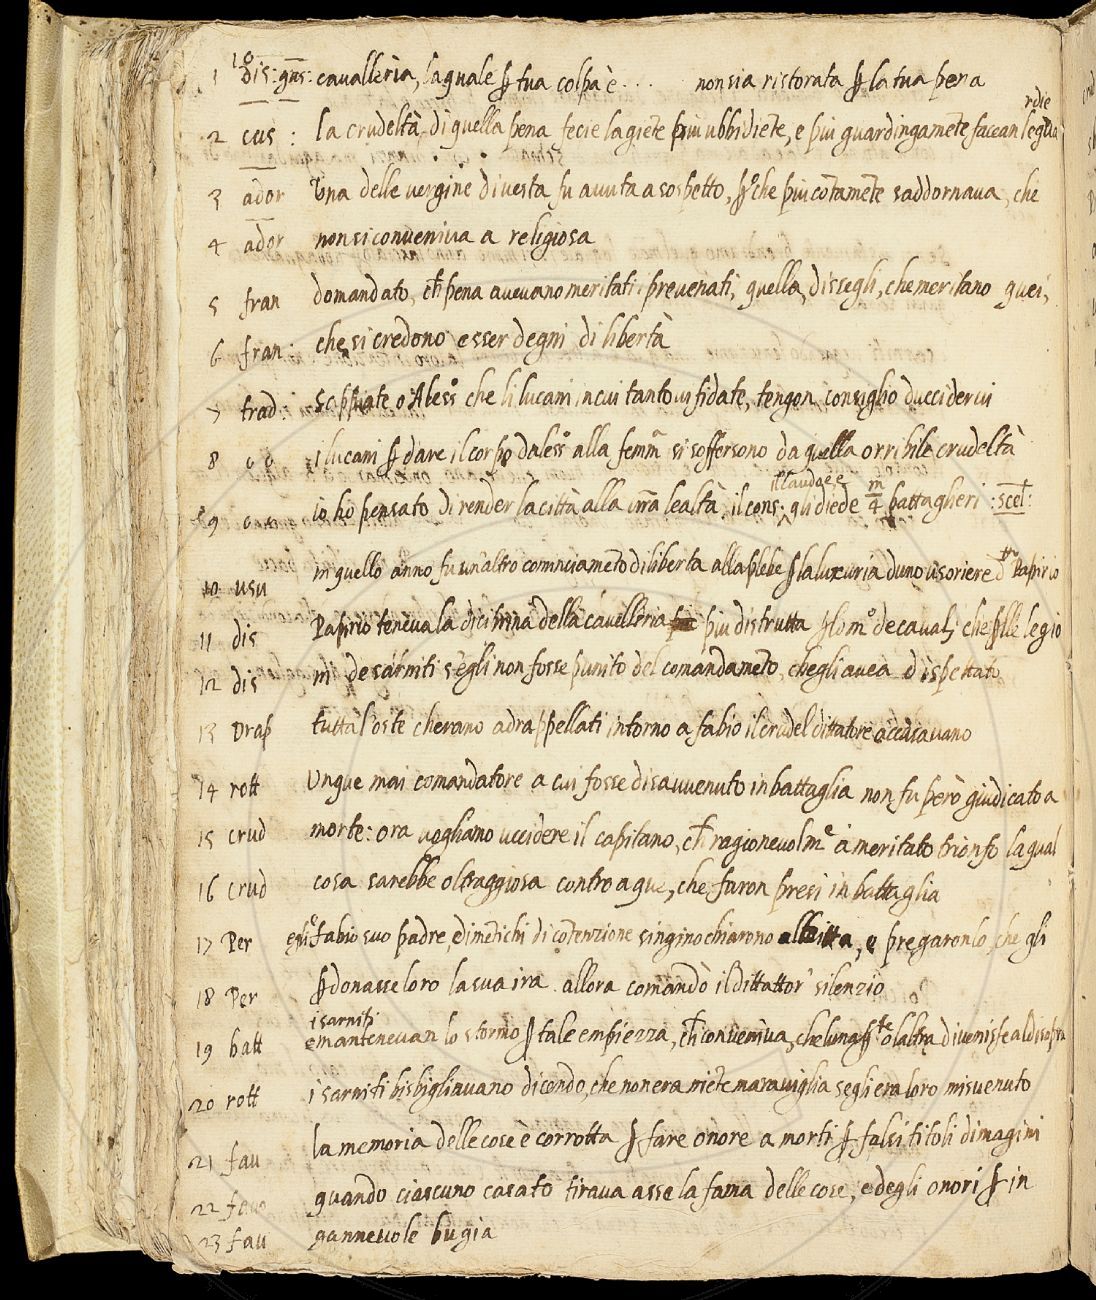 10
1 dis: gns: cavalleria, laquale ꝑ tua colpa è . . . non sia ristorata ꝑ la tua pena
rdie
2 cus : la crudeltà di quella pena fecie la giẽte piu ubbidiẽte, e piu guardingamẽte facean le gua
3 ador Una delle vergine di vesta fu avuta a sospetto, ꝑche piu cõtamẽte saddornava, che
4 ador non si conveniva a religiosa
5 fran domandato, cħ pena avevano meritati i prevenati, quella, dissegli, che meritano quei,
6 fran: che si credono esser degni di libertà
7 trad: Sappiate o Aless° che li lucani in cui tanto vi fidate, tengon consiglio ducciderui
8 o o i lucani ꝑ dare il corpo daless° alla femma si soffersono da quella orribile crudeltà
illaudee
9 io hò pensato di render la città alla vr̃a lealtà, il cons: gli diede m/4 battaglieri :scel:
10 usu in quello anno fu un'altro cominciamẽto di liberta alla plebe ꝑ la luxuria duno usoriere dtto Papirio
11 dis Papirio teneva la diciprina della cavelleria piu distrutta ꝑ lo m° de cavalj che ꝑ lle legio
12 dis ni de sarniti s'egli non fosse punito del comandamẽto, chegli avea dispettato
13 Drap tutta l'oste cherano adrappellati intorno a fabio il crudel dittatore accusavano
14 rott Unque mai comandatore a cui fosse disavvenuto in battaglia non fu però giudicato a
15 crud morte: ora vogliamo uccidere il capitano, cħ ragionevolmẽ à meritato trionfo la qual
16 crud cosa sarebbe oltraggiosa contro a que, che furon presi in battaglia
17 Per egli° fabio suo padre e dimẽtichi di cõtenzione singinochiarono, e pregaronlo che gli
18 Per ꝑdonasse loro la sua ira. allora comandò il dittattor silenzio
i sarniti
19 batt emantenevan lo stormo ꝑ tale empiezza, cħ conveniva, che luna ꝑte o laltra divenisse al disopra
20 rott i sarniti bisbigliavano dicendo, che non era niẽte maraviglia segli era loro misvenuto
21 fau la memoria delle cose è corrotta ꝑ fare onore a morti ꝑ falsi titoli dimagini
22 fauo quando ciascuno casato tirava asse la fama delle cose, e degli onori ꝑ in
23 fau gannevole bugia